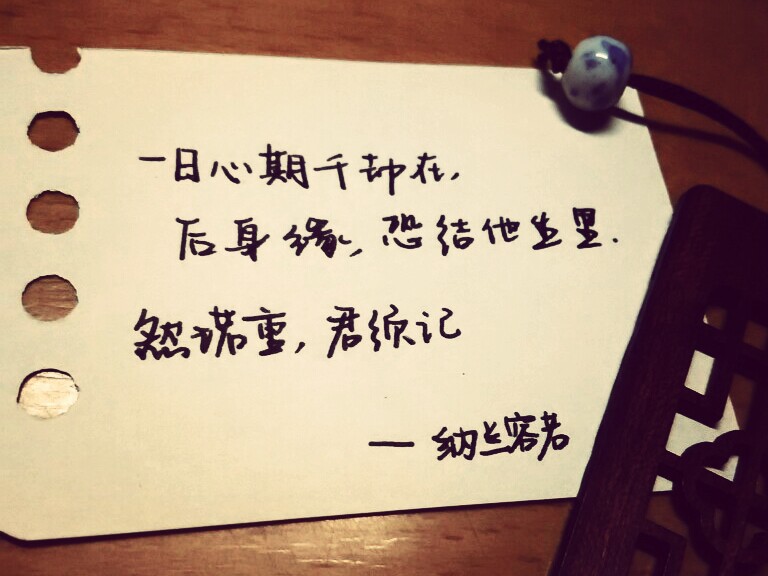 一日心期千劫在,
后身缘,恐结他生里.
然诺重,君须记
— 纳兰容若